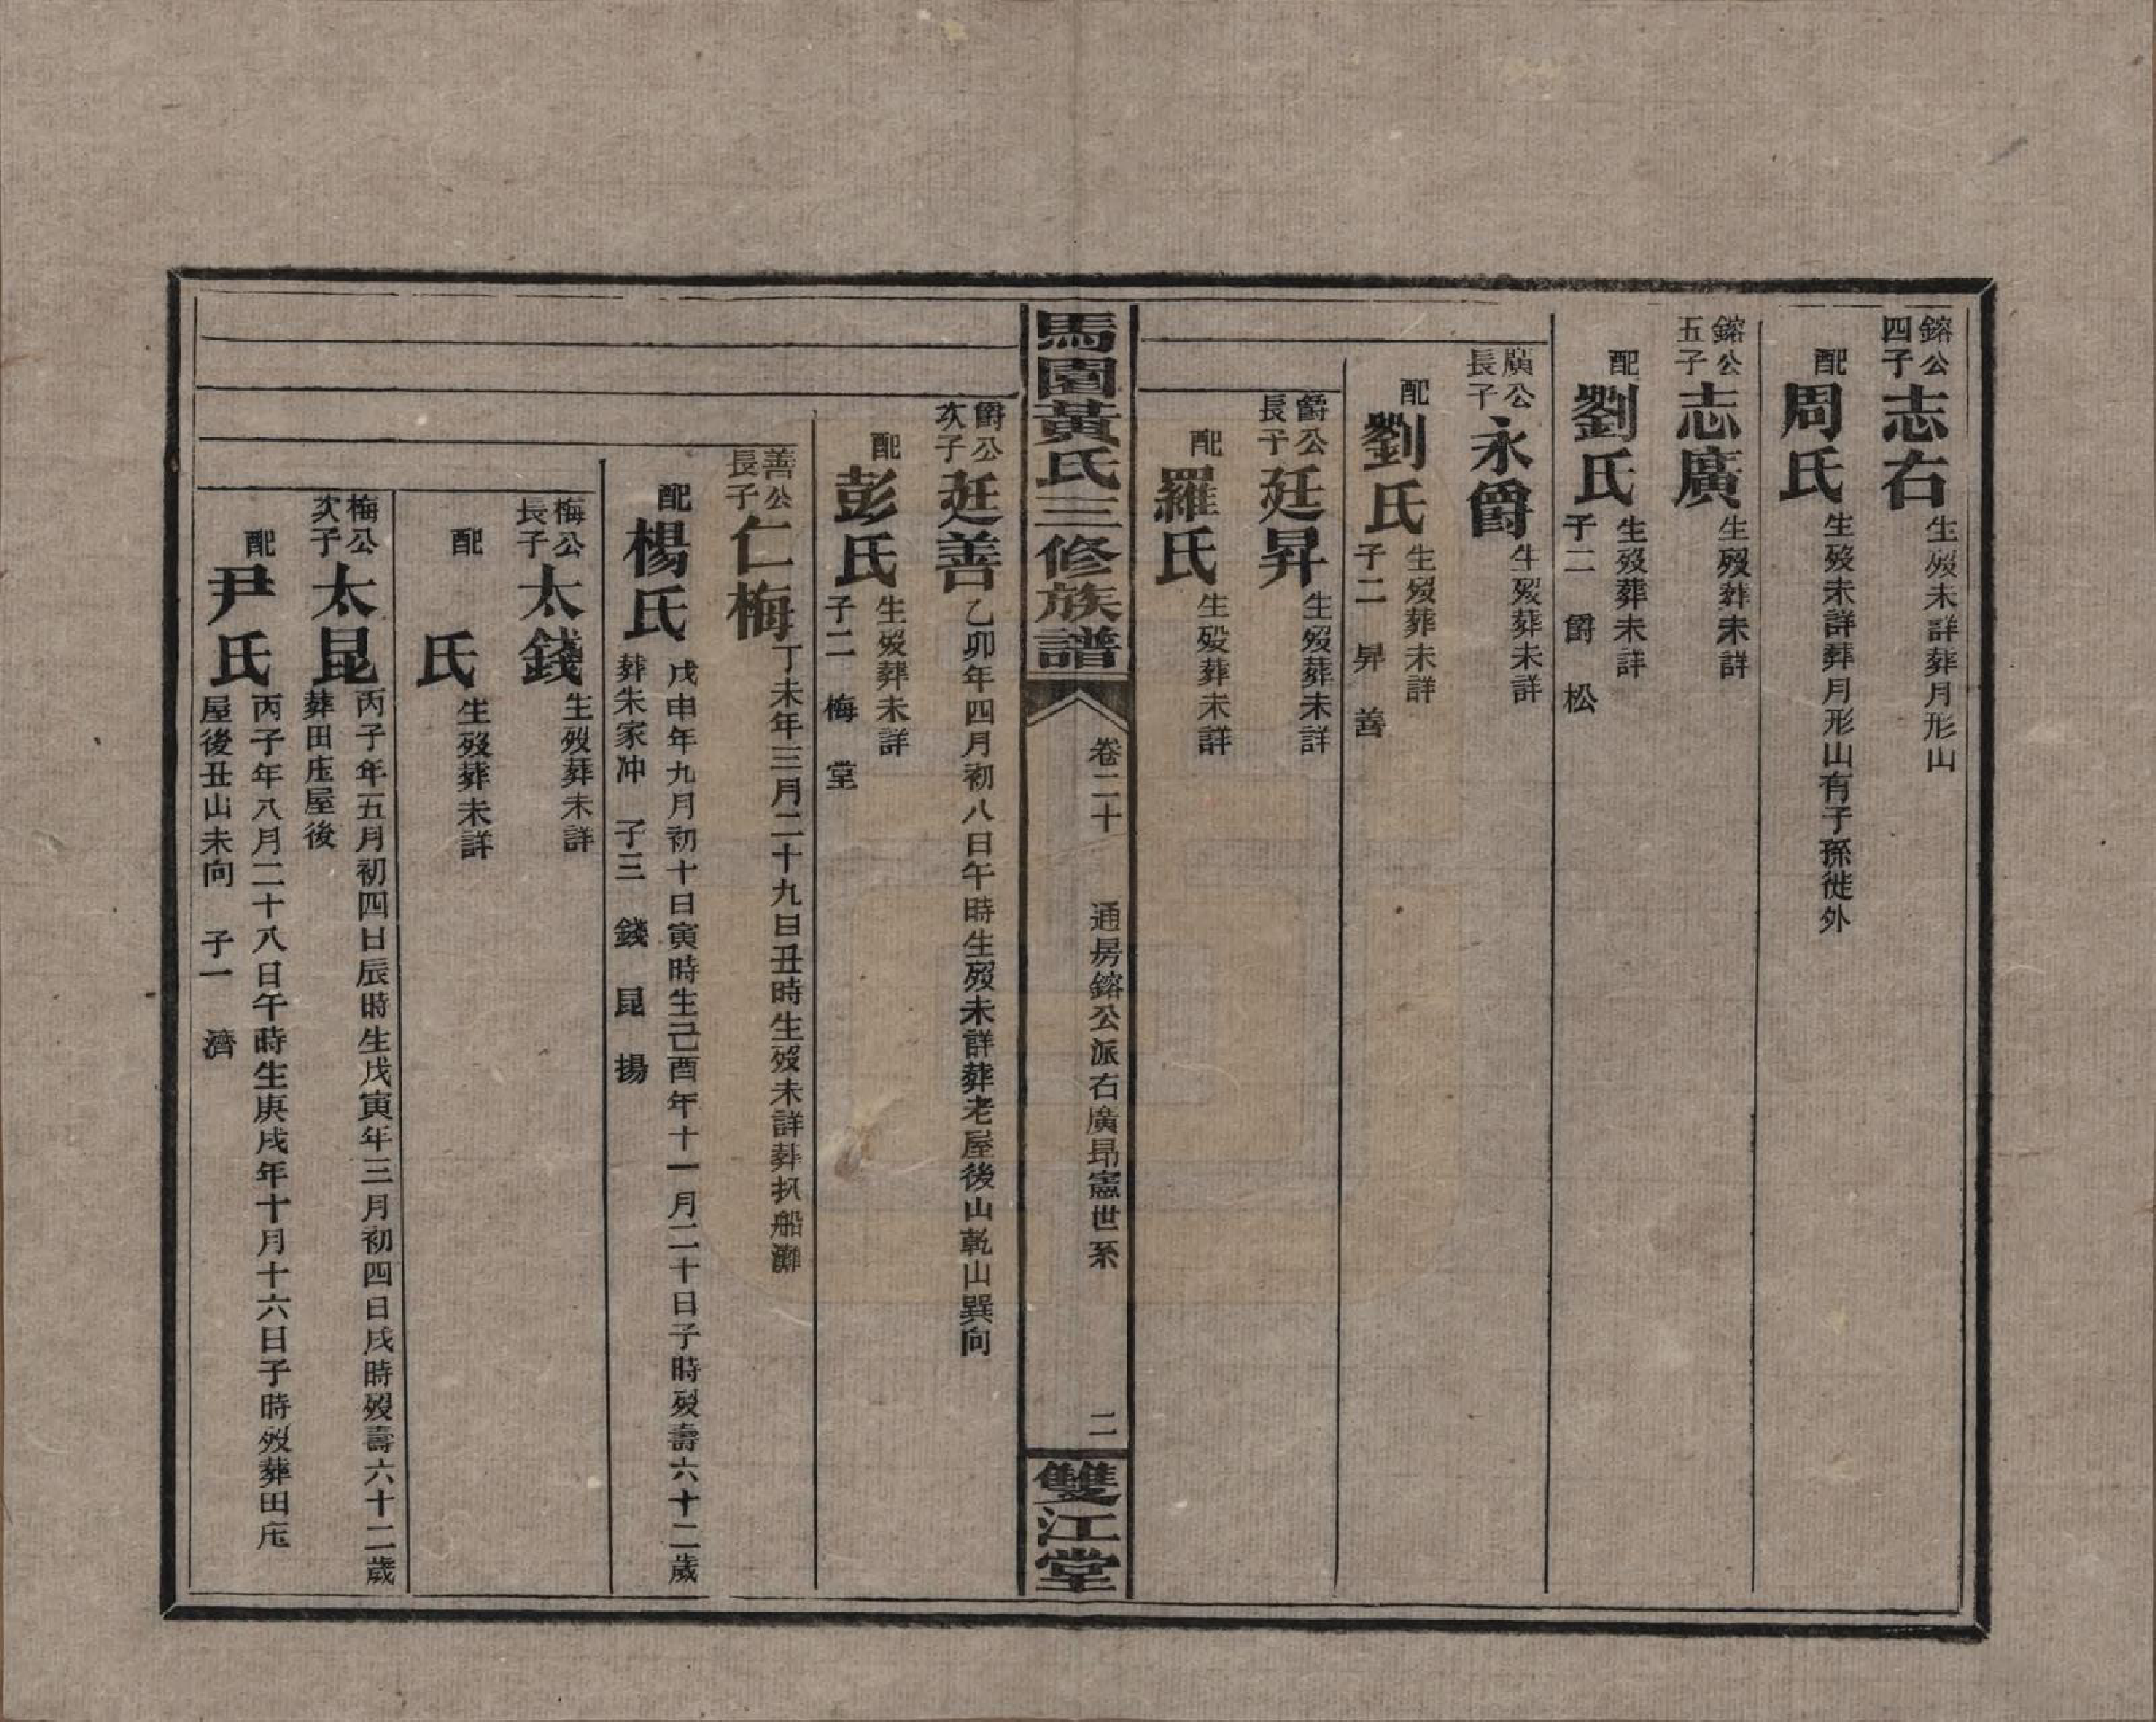 鎔公四子 志右 生歿未詳葬月形山
配 周氏 生歿未詳葬月形山有子孫徙外
鎔公五子 志廣 生歿葬未詳
配 劉氏 生歿葬未詳
子二 爵 松
廣公長子 永爵 生歿葬未詳
配 劉氏 生歿葬未詳
子二 昇 善
爵公長子 廷昇 生歿葬未詳
配 羅氏 生歿葬未詳
馬園黃氏三修族譜 卷二十 通房鎔公派右廣昂憲世系 二 雙江堂
爵公次子 廷善 乙卯年四月初八日午時生歿未詳葬老屋後山乾山巽向
配 彭氏 生歿葬未詳
子二 梅 堂
善公長子 仁梅 丁未年三月二十九日丑時生歿未詳葬扒船灘
配 楊氏 戊申年九月初十日寅時生己酉年十一月二十日子時歿壽六十二歲
葬朱家冲 子三 錢 昆 揚
梅公長子 太錢 生歿葬未詳
配 氏 生歿葬未詳
梅公次子 太昆 丙子年五月初四日辰時生戊寅年三月初四日戌時歿壽六十二歲
葬田庒屋後
配 尹氏 丙子年八月二十八日午時生庚戌年十月十六日子時歿葬田庒
屋後丑山未向 子一 濟